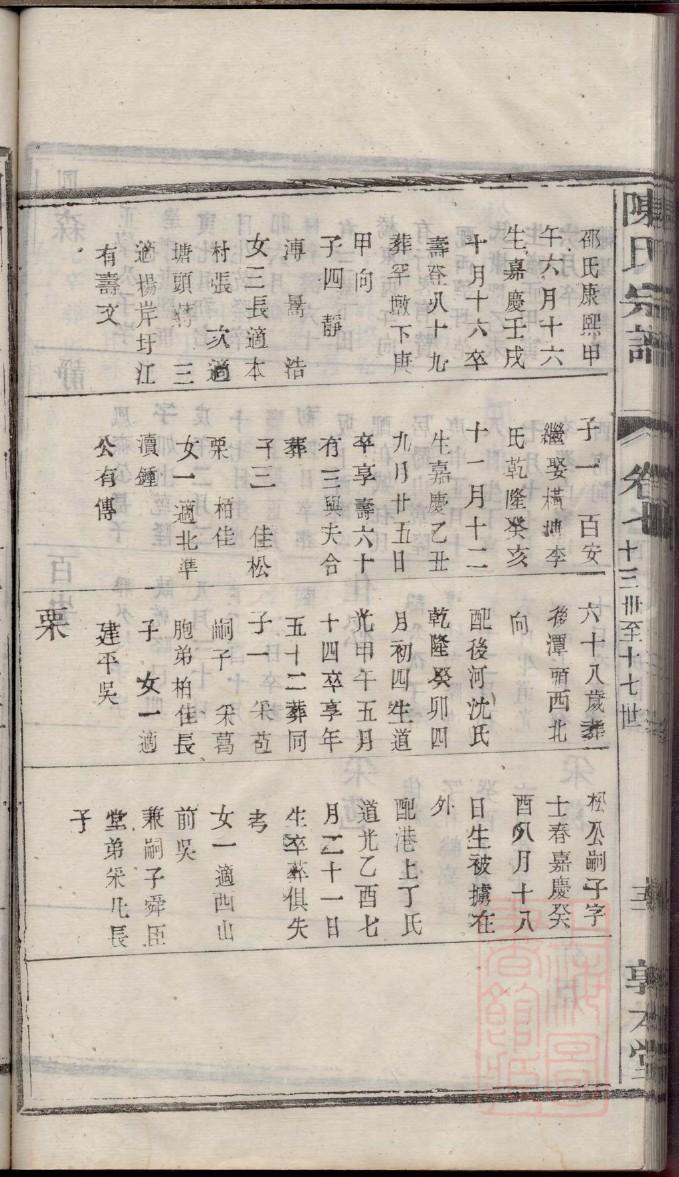 陳氏宗譜
卷七
十三世至十七世
敦本堂
邵氏康熙甲
午六月十六
生嘉慶壬戌
十月十六卒
壽登八十九
葬罕墩下庚
甲向
子四 靜
溥 暠 浩
女三長適本
村張 次適
塘頭蔣 三
適楊岸圩江
有壽文
子一 百安
繼娶橫塘李
氏乾隆癸亥
十一月十二
生嘉慶乙丑
九月廿五日
卒享壽六十
有三與夫合
葬
子三 佳松
栗 柏佳
女一適北準
瀆鍾
公有傳
六十八歲葬
後潭頭西北
向
配後河沈氏
乾隆癸卯四
月初四生道
光甲午五月
十四卒享年
五十二葬同
子一 采苞
嗣子 采葛
胞弟柏佳長
子 女一適
建平吳
栗
松公嗣子字
士春嘉慶癸
酉八月十八
日生被擄在
外
配港上丁氏
道光乙酉七
月二十一日
生卒葬俱失
考
女一適西山
前吳
兼嗣子舜臣
堂弟采凡長
子